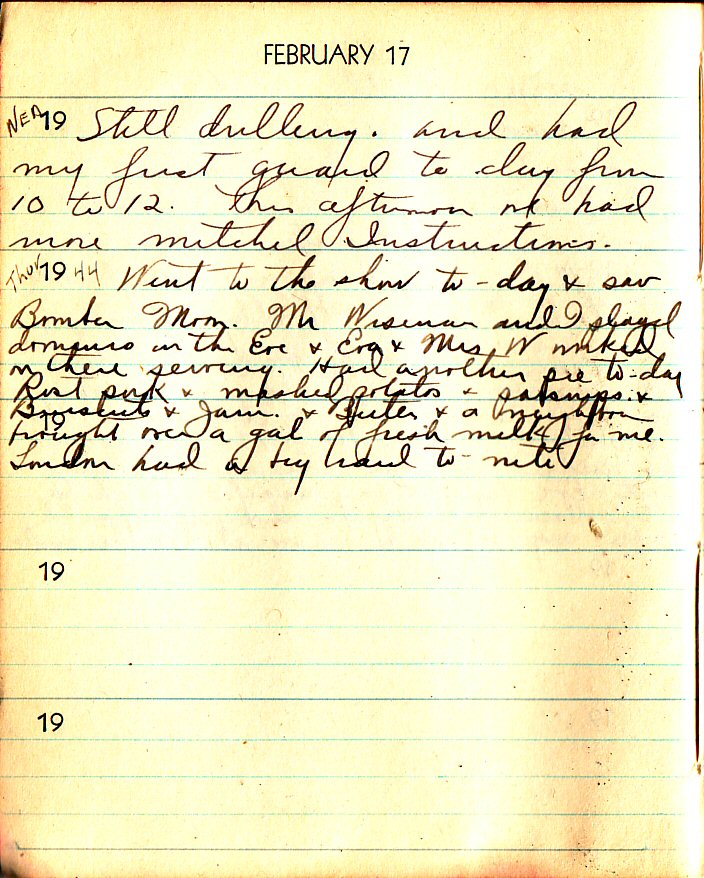 FEBRUARY 17
Wed 19 Still drilling. and had
my first guard to day from
10 to 12. This afternoon we had
more mitchel Instructions.
Thur 19 44 Went to the show to-day & saw
Bomber Moon. Mr Wiseman and I played
dominos in the Eve & Eva & Mrs W worked
on there sewing. Had another pie to-day
Rost pork & mashed potatos & parsnips &
19 Biscuits & Jam. & Buter & a neighbour
brought over a gal of fresh milk for me.
London had a big raid to-nite
19
19